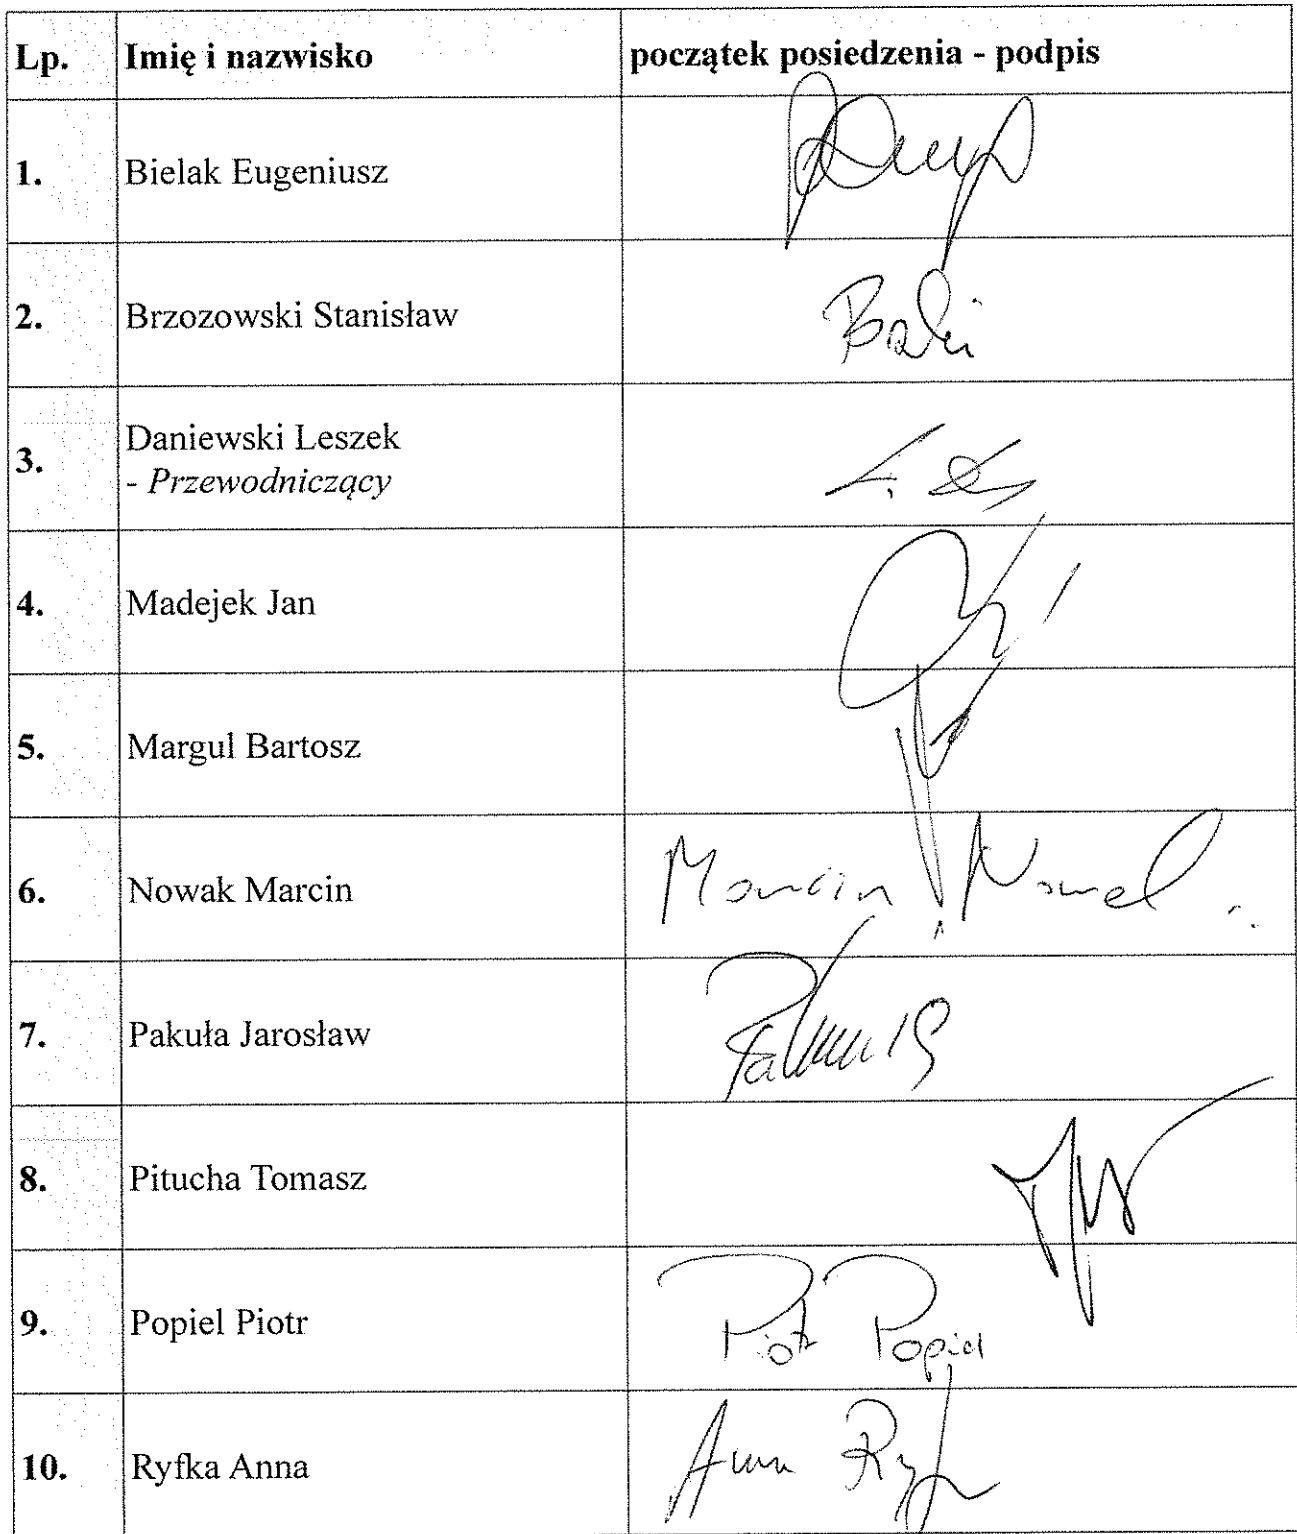 Lp. Imię i nazwisko początek posiedzenia - podpis
1. Bielak Eugeniusz
2. Brzozowski Stanisław
3. Daniewski Leszek
- Przewodniczący
4. Madejek Jan
5. Margul Bartosz
6. Nowak Marcin Marcin Nowak
7. Pakuła Jarosław
8. Pitucha Tomasz
9. Popiel Piotr Piotr Popiel
10. Ryfka Anna Anna